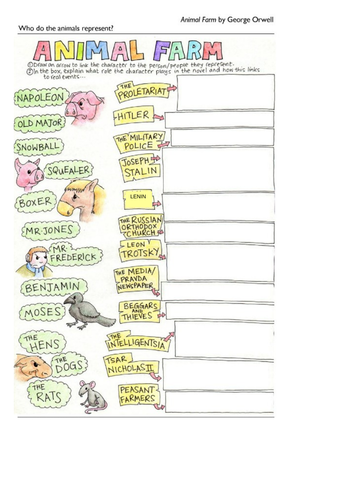 Animal Farm by George Orwell
Who do the animals represent?
ANIMAL FARM
①Draw an arrow to link the character to the person/people they represent.
②In the box, explain what role the character plays in the novel and how this links
to real events...
NAPOLEON
OLD MAJOR
SNOWBALL
SQUEALER
BOXER
MR JONES
MR.
FREDERICK
BENJAMIN
MOSES
THE
HENS
THE
DOGS
THE
RATS
THE
PROLETARIAT
HITLER
THE MILITARY
POLICE
JOSEPH
STALIN
LENIN
THE RUSSIAN
ORTHODOX
CHURCH
LEON
TROTSKY
THE MEDIA/
PRAVDA
NEWSPAPER
BEGGARS
AND
THIEVES
THE
INTELLIGENTSIA
TSAR
NICHOLAS II
PEASANT
FARMERS